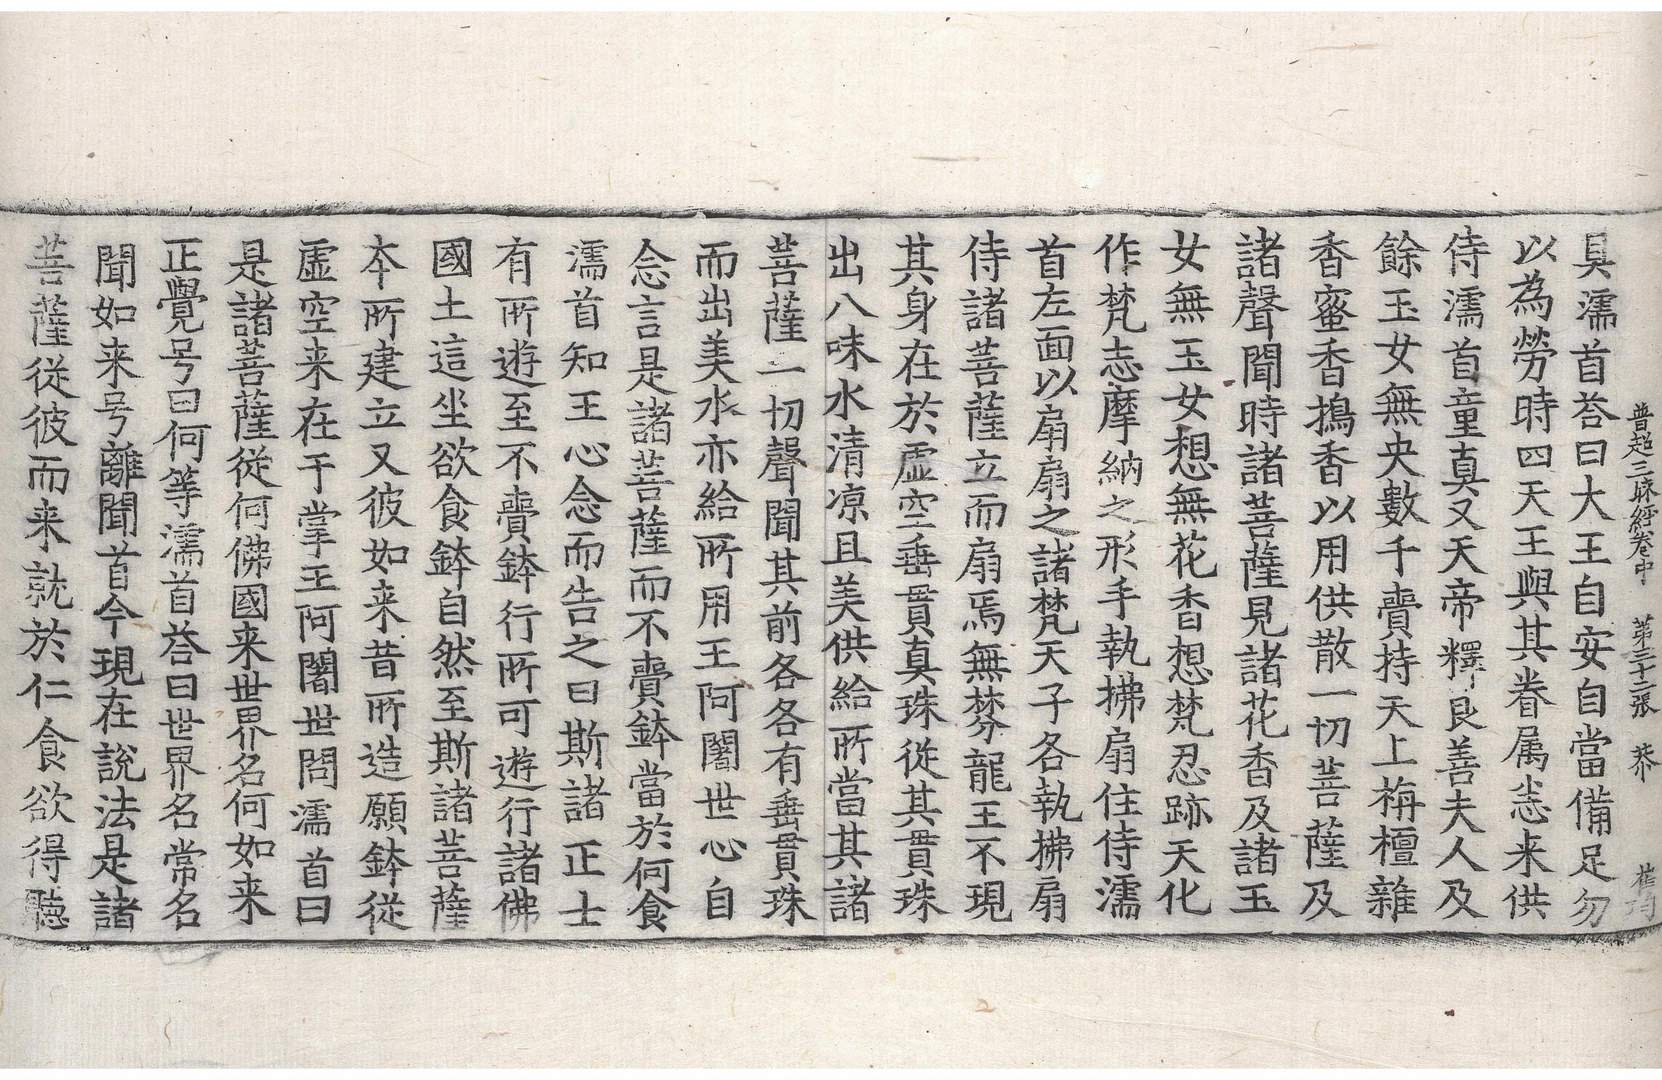 普超三昧經卷中 第三十二張 恭
具濡首荅曰大王自安自當備足勿
以為勞時四天王與其眷属悉来供
侍濡首童真又天帝釋良善夫人及
餘玉女無央數千賷持天上栴檀雜
香蜜香擣香以用供散一切菩薩及
諸聲聞時諸菩薩見諸花香及諸玉
女無玉女想無花香想梵忍跡天化
作梵志摩納之形手執拂扇住侍濡
首左面以扇扇之諸梵天子各執拂扇
侍諸菩薩立而扇焉無棼龍王不現
其身在於虚空垂貫真珠従其貫珠
出八味水清涼且美供給所當其諸
菩薩一切聲聞其前各各有垂貫珠
而出美水亦給所用王阿闍世心自
念言是諸菩薩而不賷鉢當於何食
濡首知王心念而告之曰斯諸正士
有所遊至不賷鉢行所可遊行諸佛
國土這坐欲食鉢自然至斯諸菩薩
夲所建立又彼如来昔所造願鉢従
虚空来在于掌王阿闍世問濡首曰
是諸菩薩従何佛國来世界名何如来
正覺号曰何等濡首荅曰世界名常名
聞如来号離聞首今現在說法是諸
菩薩従彼而来就於仁食欲得聽